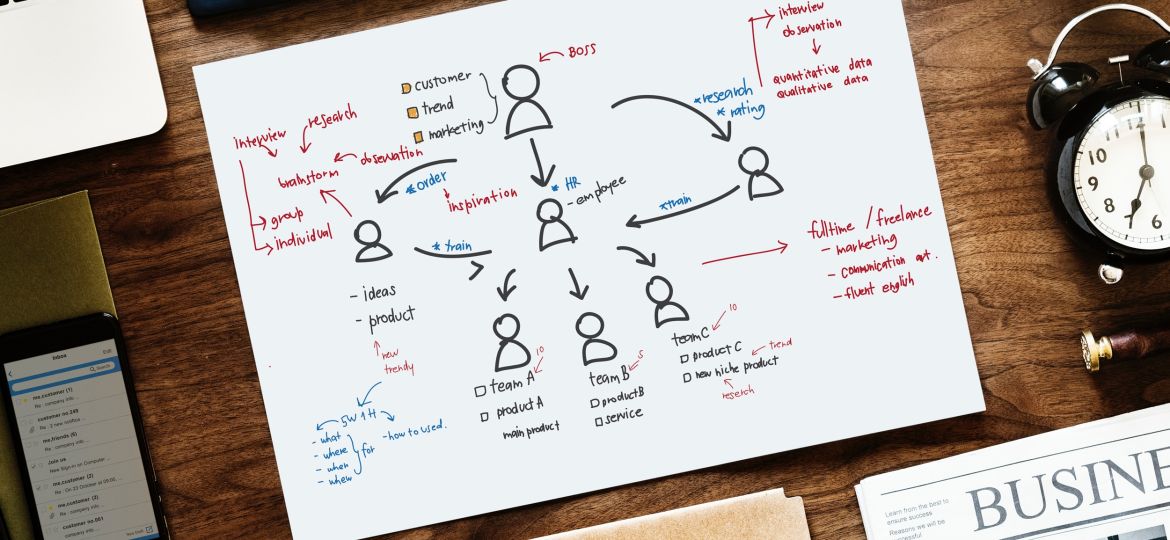 BOSS
customer
trend
marketing
interview
observation
quantitative data
qualitative data
*research
* rating
interview
research
observation
brainstorm
group
individual
*order
inspiration
* HR
- employee
*train
* train
- ideas
- product
new
trendy
5W1H
- what
- where
- when
for
- how to used.
10
team A
product A
main product
5
team B
product B
service
10
team C
product C
trend
new niche product
research
fulltime / freelance
- marketing
- communication
- fluent english
Inbox
Edit
Search
me.customer (1)
Re : company info ...
customer no.249
Re : 2 new notifica ...
me.friends (5)
Re : company info ...
Join us
New Sign-in on Computer ...
me.customer (2)
Re : On 23 October at 09:00, ...
me.customer (2)
Re : company info ...
customer no.051
company info ...
12
11
10
9
8
7
6
Learn from the best to
ensure success
Reasons we will be
successful
BUSINE